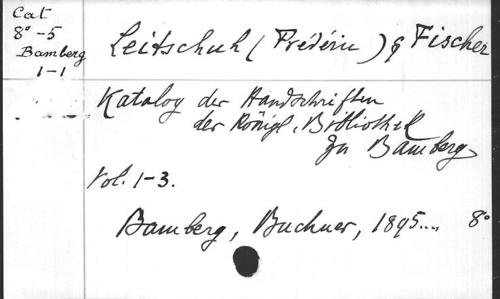 Cat
8° - 5
Bamberg
1-1
Leitschuh (Frédéric) & Fischer
Katalog der Handschriften
der Königl. Bibliothek
zu Bamberg
Vol. 1-3.
Bamberg, Buchner, 1895.... 8°